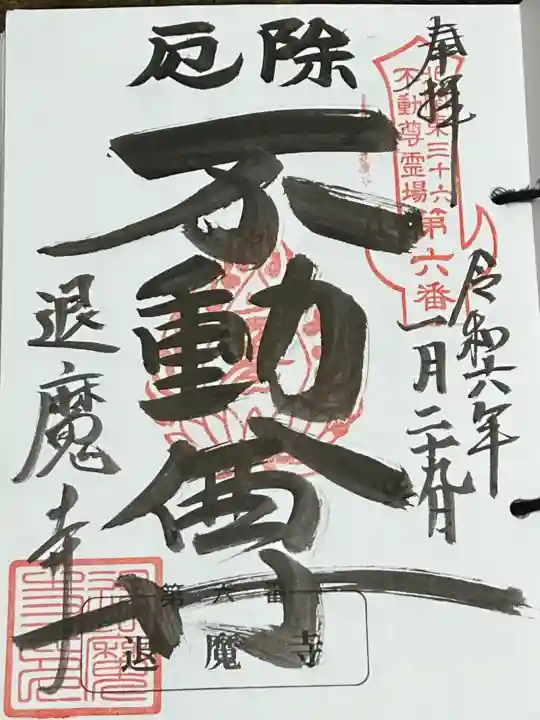 奉拝
北関東三十六
不動尊霊場
第六番
令和六年
一月二十九日
厄除
不動尊
退魔寺
第六番
退魔寺